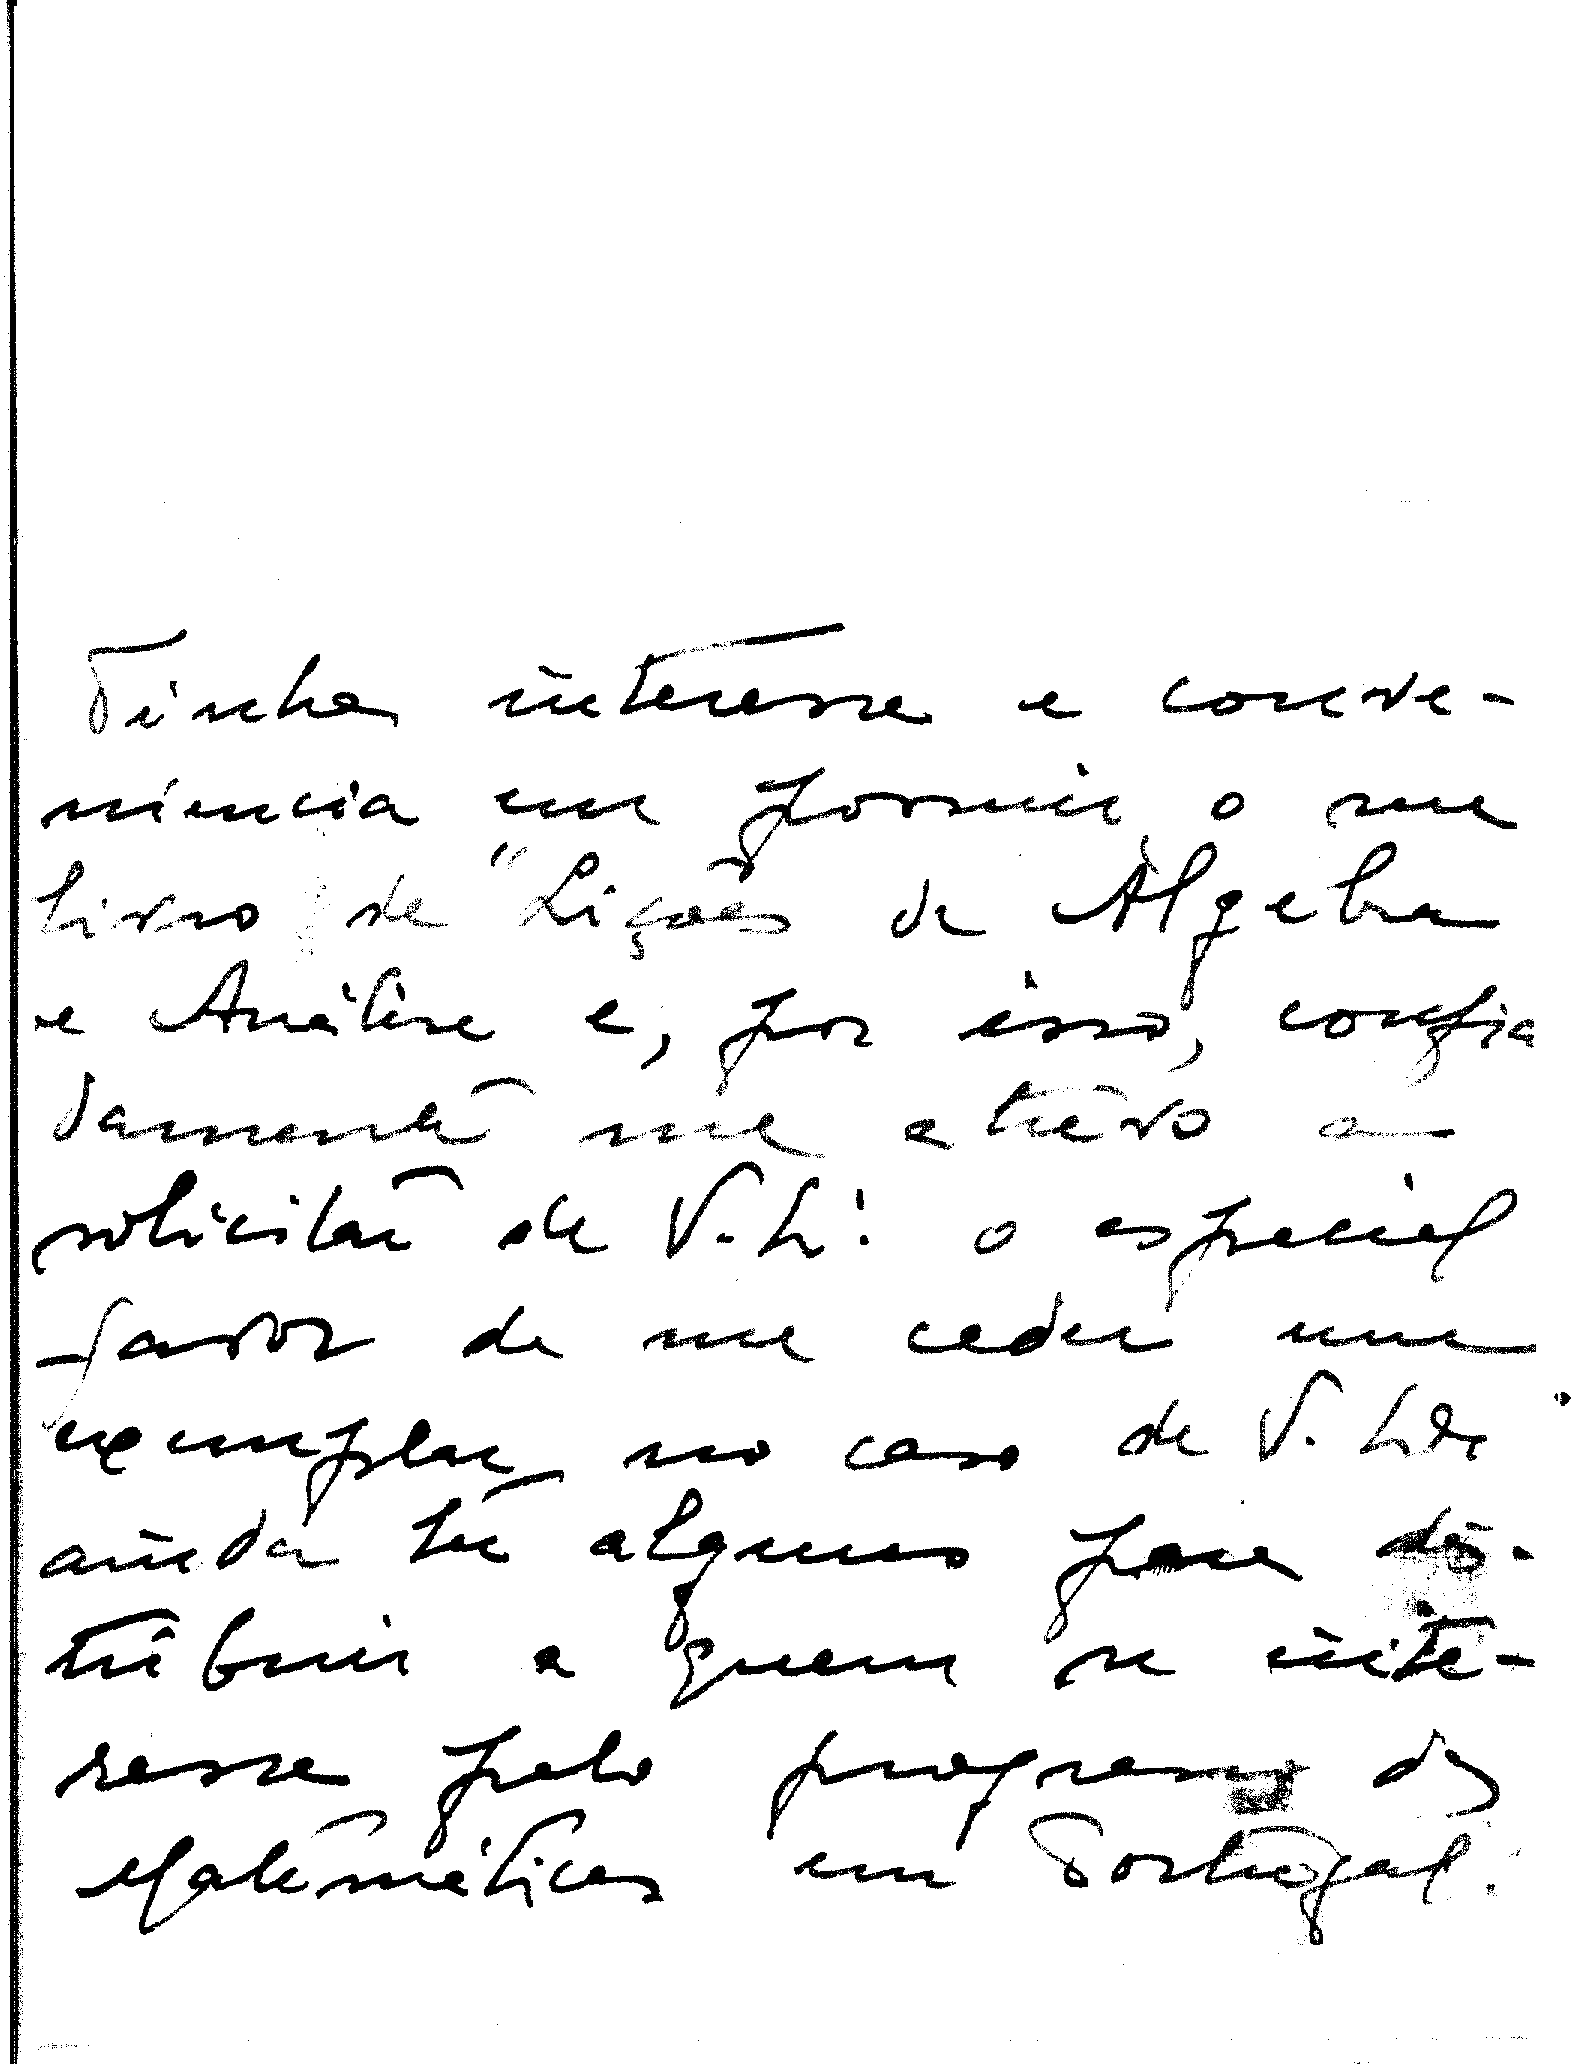 Tinha interesse e conve-
niencia em possuir o seu
livro de "Lições de Álgebra
e Análise e, por isso, confia
damente me atrevo a
solicitar de V. o especial
favor de me ceder um
exemplar no caso de V.
ainda ter alguns para dis-
tribuir a quem se inte-
resse pelo progresso das
Matemáticas em Portugal.